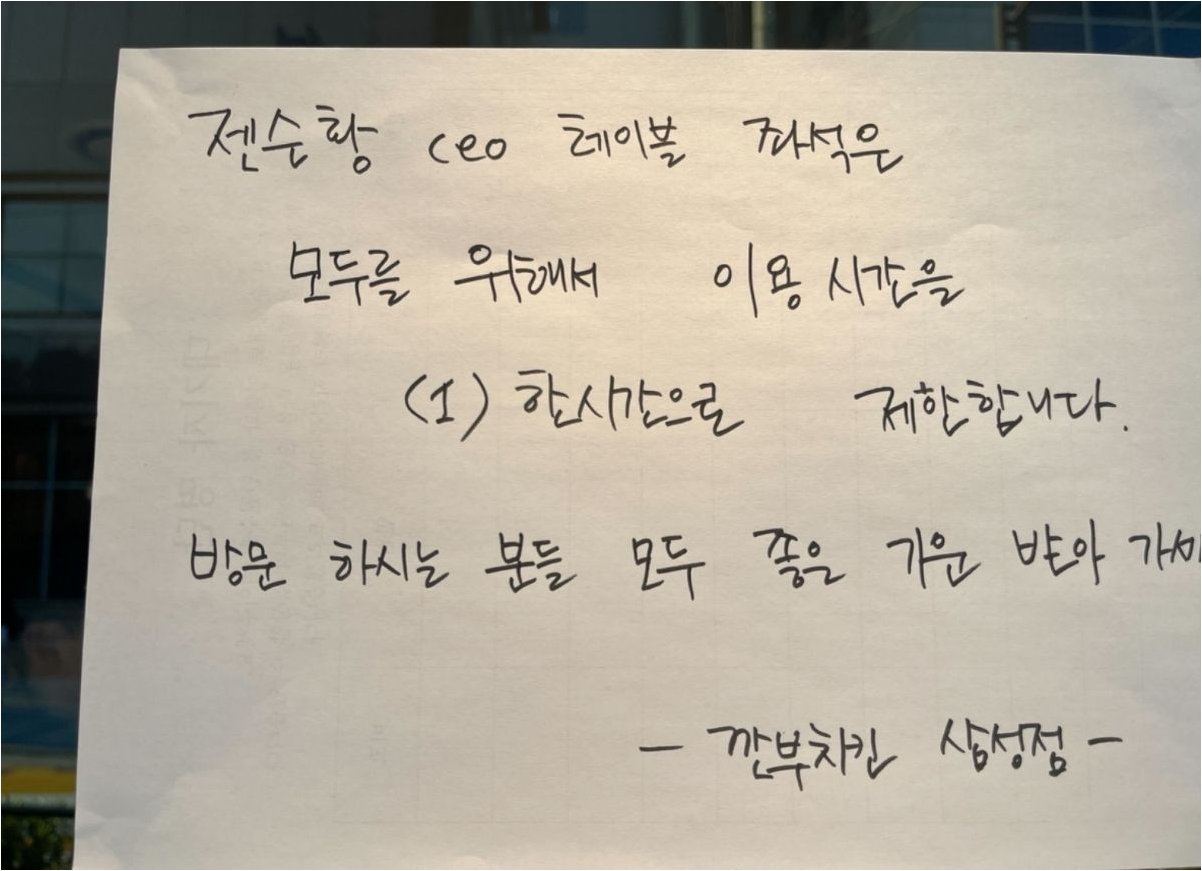 젠슨황 ceo 테이블 좌석은
모두를 위해서 이용 시간을
(1) 한시간으로 제한합니다.
방문 하시는 분들 모두 좋은 기운 받아
- 깐부치킨 삼성점 -